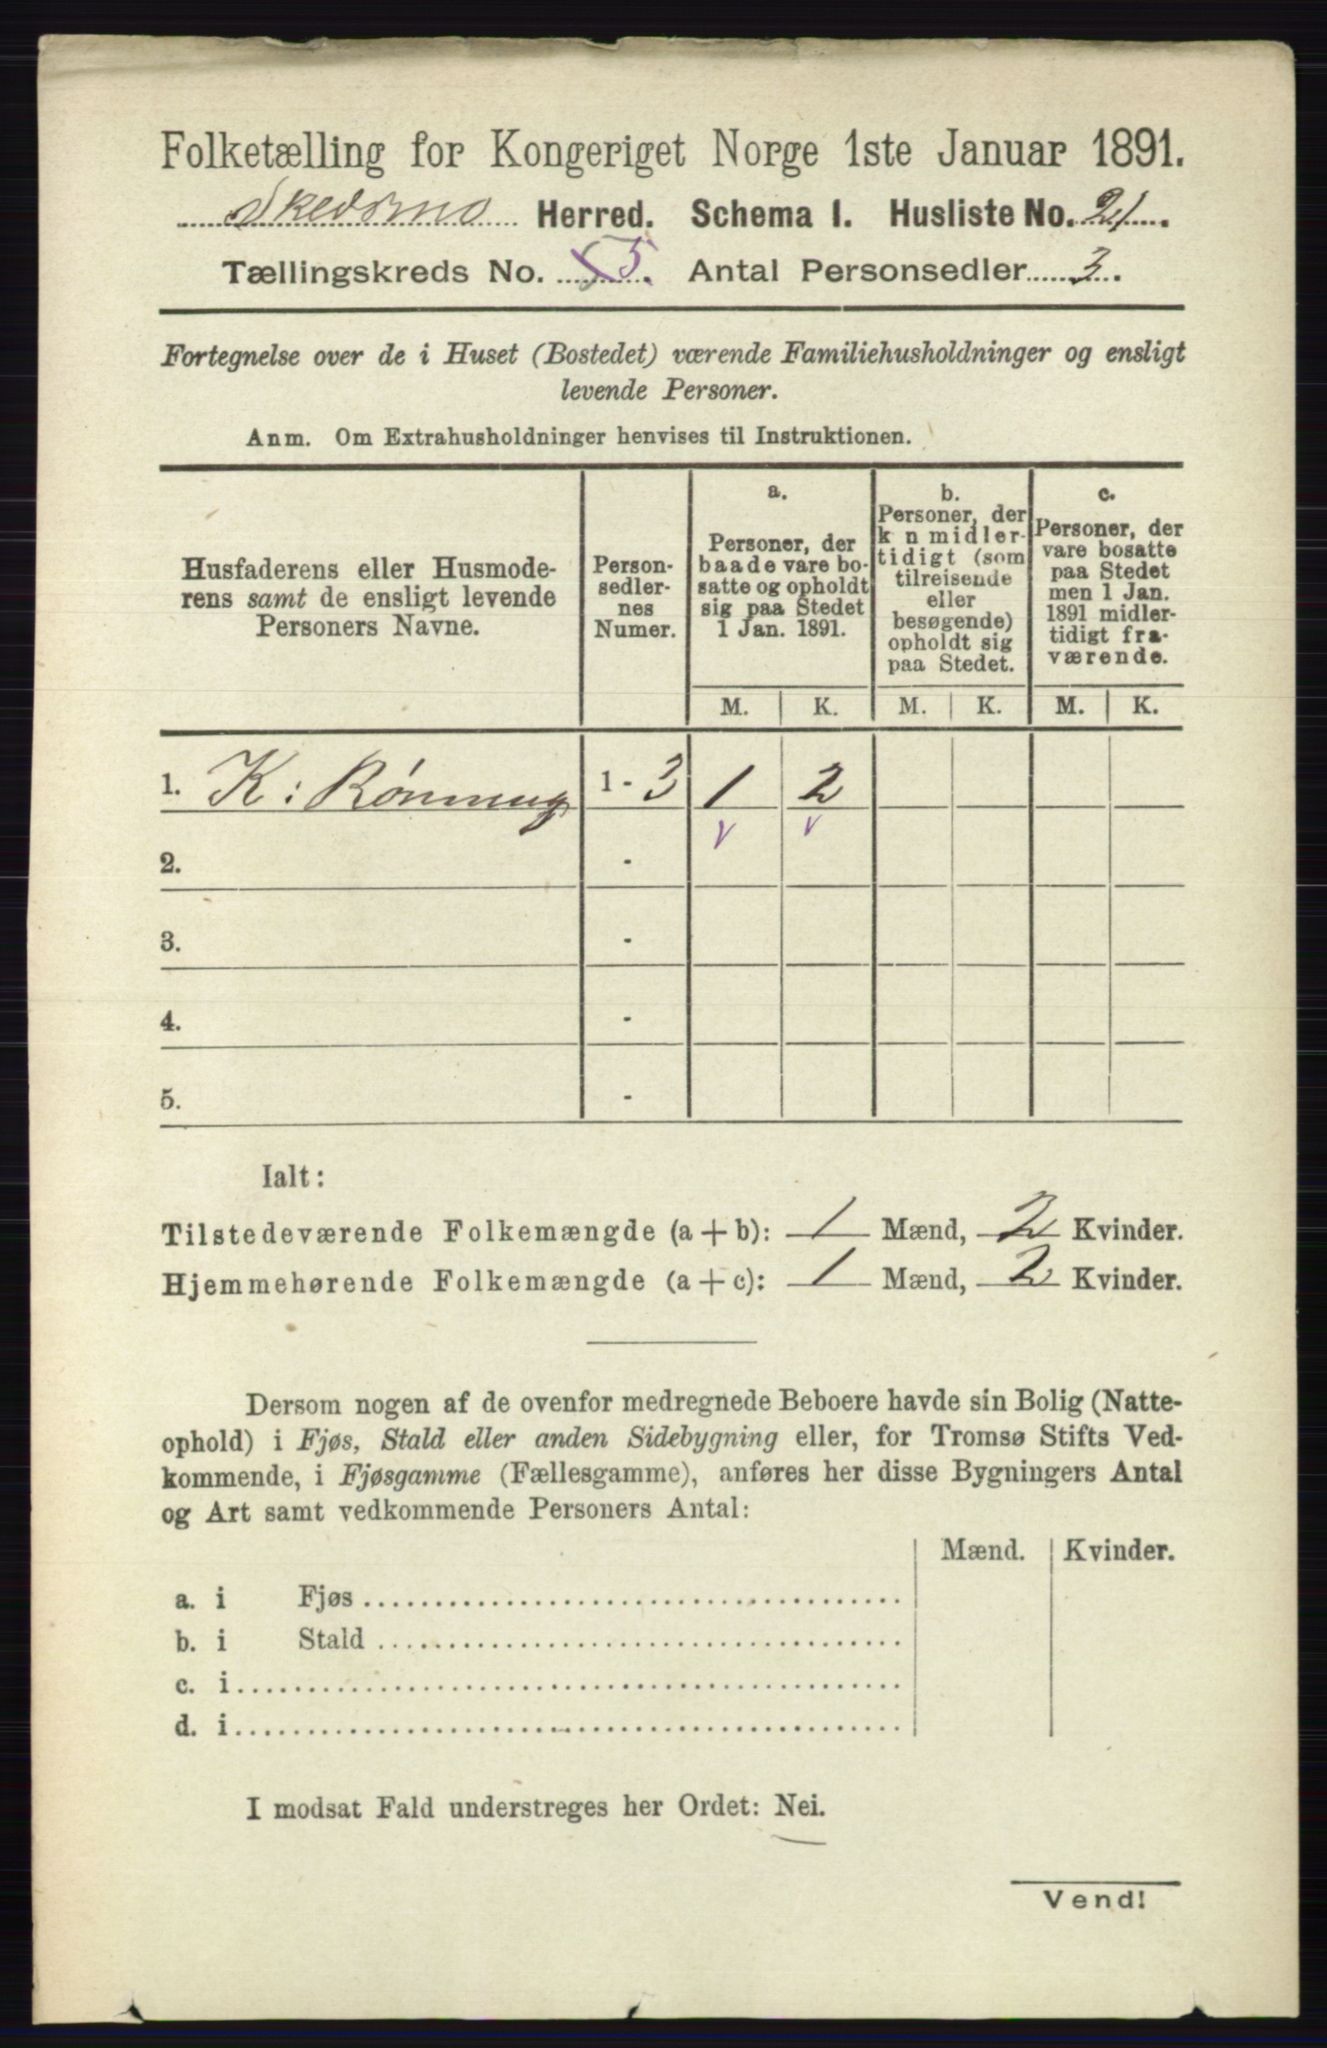 Folketælling for Kongeriget Norge 1ste Januar 1891.
Skedsmo Herred. Schema I. Husliste No. 21.
Tællingskreds No. 5. Antal Personsedler 3.
Fortegnelse over de i Huset (Bostedet) værende Familiehusholdninger og ensligt
levende Personer.
Anm. Om Extrahusholdninger henvises til Instruktionen.
Husfaderens eller Husmode-
rens samt de ensligt levende
Personers Navne.
Person-
sedler-
nes
Numer.
a.
Personer, der
baade vare bo-
satte og opholdt
sig paa Stedet
1 Jan. 1891.
b.
Personer, der
k n midler-
tidigt (som
tilreisende
eller
besøgende)
opholdt sig
paa Stedet.
c.
Personer, der
vare bosatte
paa Stedet
men 1 Jan.
1891 midler-
tidigt fra-
værende.
M. K. M. K. M. K.
1. K: Rønning 1 - 3 1 2
2. -
3. -
4. -
5. -
Ialt:
Tilstedeværende Folkemængde (a + b): 1 Mænd, 2 Kvinder.
Hjemmehørende Folkemængde (a + c): 1 Mænd, 2 Kvinder.
Dersom nogen af de ovenfor medregnede Beboere havde sin Bolig (Natte-
ophold) i Fjøs, Stald eller anden Sidebygning eller, for Tromsø Stifts Ved-
kommende, i Fjøsgamme (Fællesgamme), anføres her disse Bygningers Antal
og Art samt vedkommende Personers Antal:
Mænd. Kvinder.
a. i Fjøs
b. i Stald
c. i
d. i
I modsat Fald understreges her Ordet: Nei.
Vend!